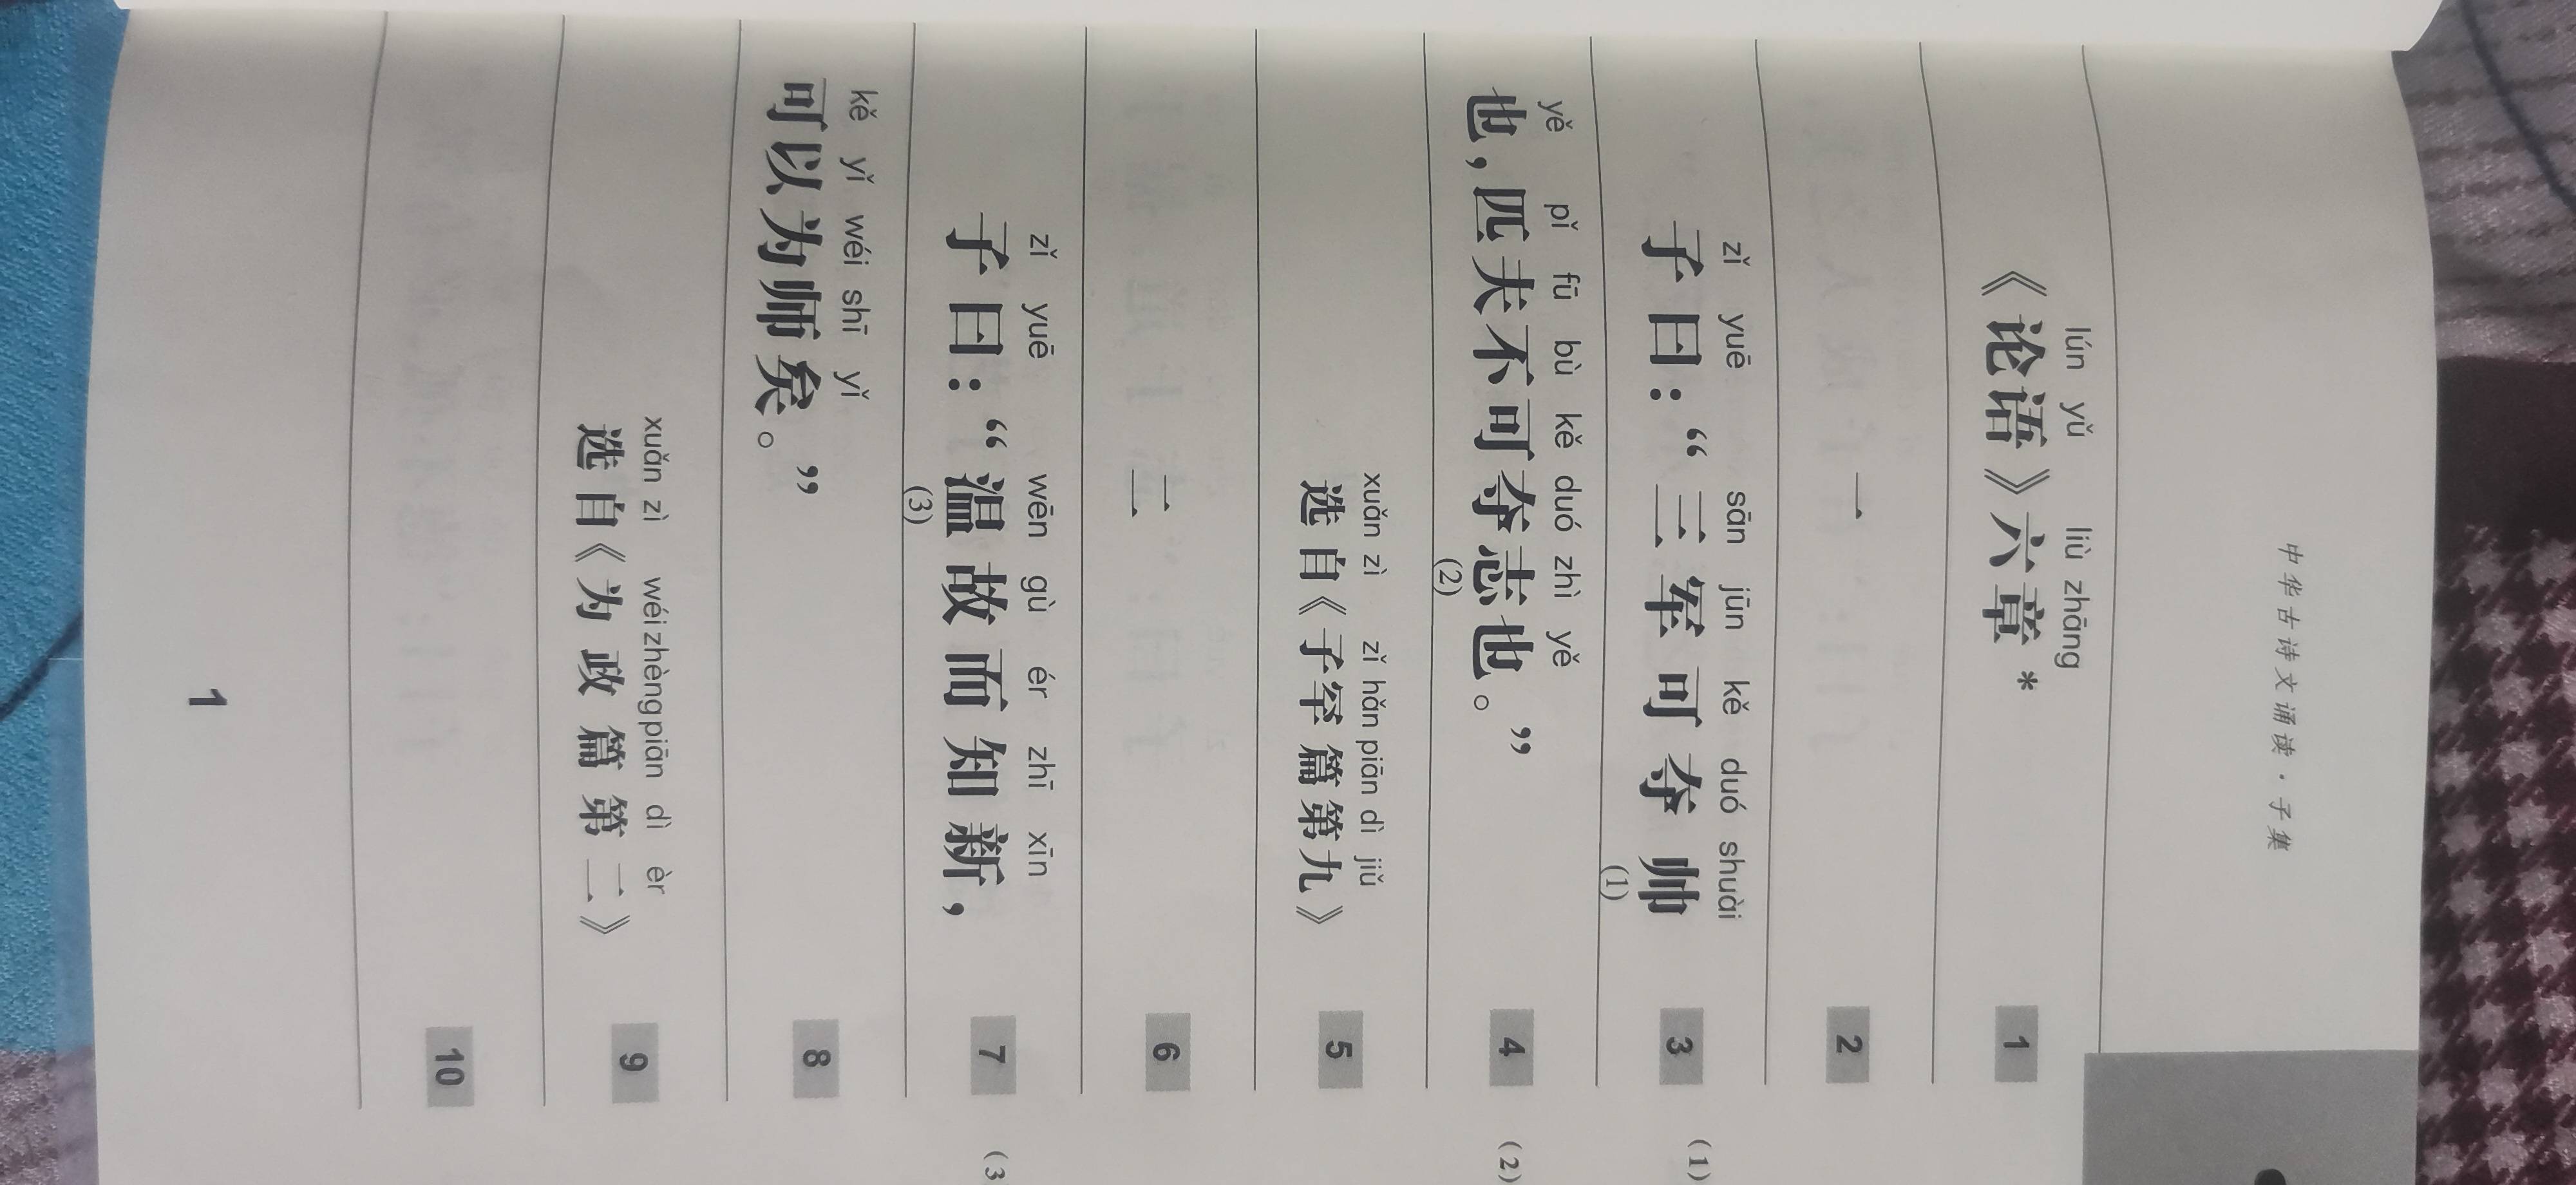 中华古诗文诵读·子集
lún yǔ liù zhāng
《论语》六章*
1
一
2
zǐ yuē sān jūn kě duó shuài
子曰：“三军可夺帅
(1)
3
(1)
yě pǐ fū bù kě duó zhì yě
也，匹夫不可夺志也。”
(2)
4
(2)
xuǎn zì zǐ hǎn piān dì jiǔ
选自《子罕篇第九》
5
二
6
zǐ yuē wēn gù ér zhī xīn
子曰：“温故而知新，
(3)
7
(3
kě yǐ wéi shī yǐ
可以为师矣。”
8
xuǎn zì wéi zhèng piān dì èr
选自《为政篇第二》
9
10
1